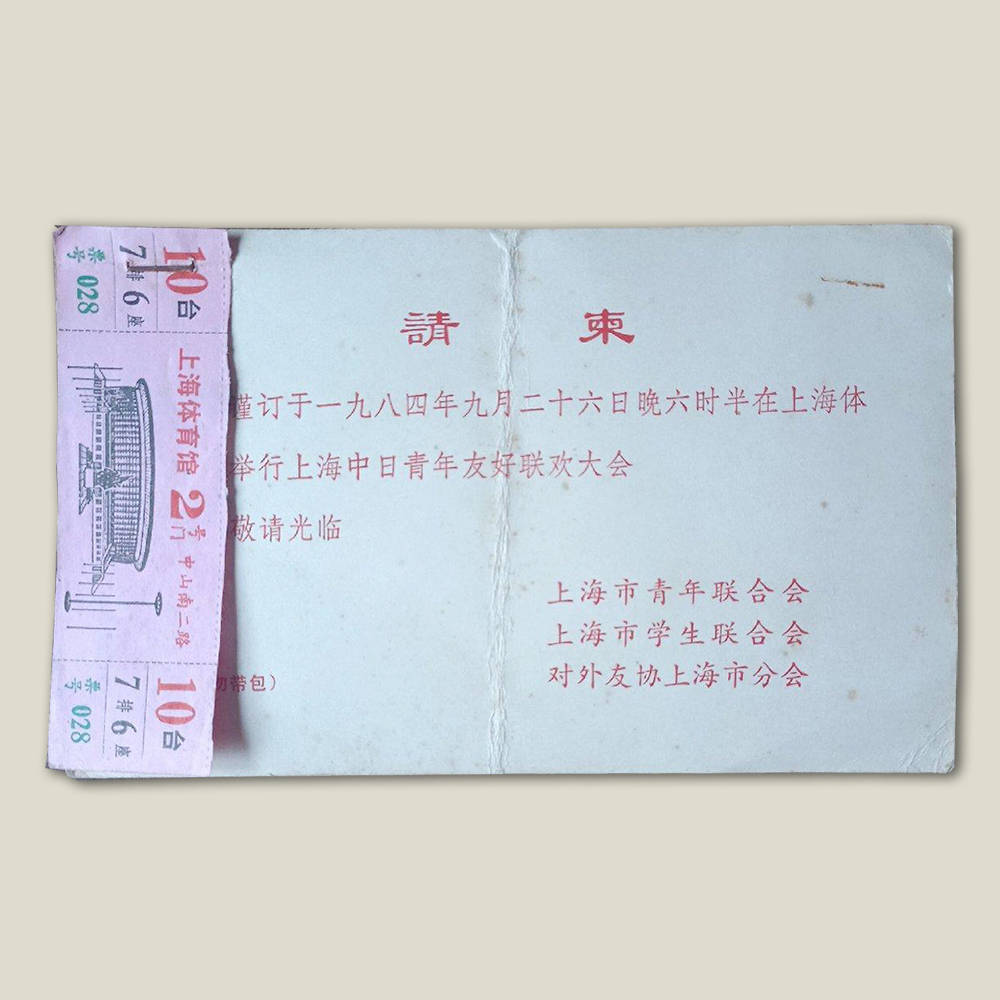 10台
7排6座
票号 028
上海体育馆 2号门 中山南二路
10台
7排6座
票号 028
請柬
谨订于一九八四年九月二十六日晚六时半在上海体
举行上海中日青年友好联欢大会
敬请光临
上海市青年联合会
上海市学生联合会
对外友协上海市分会
勿带包）